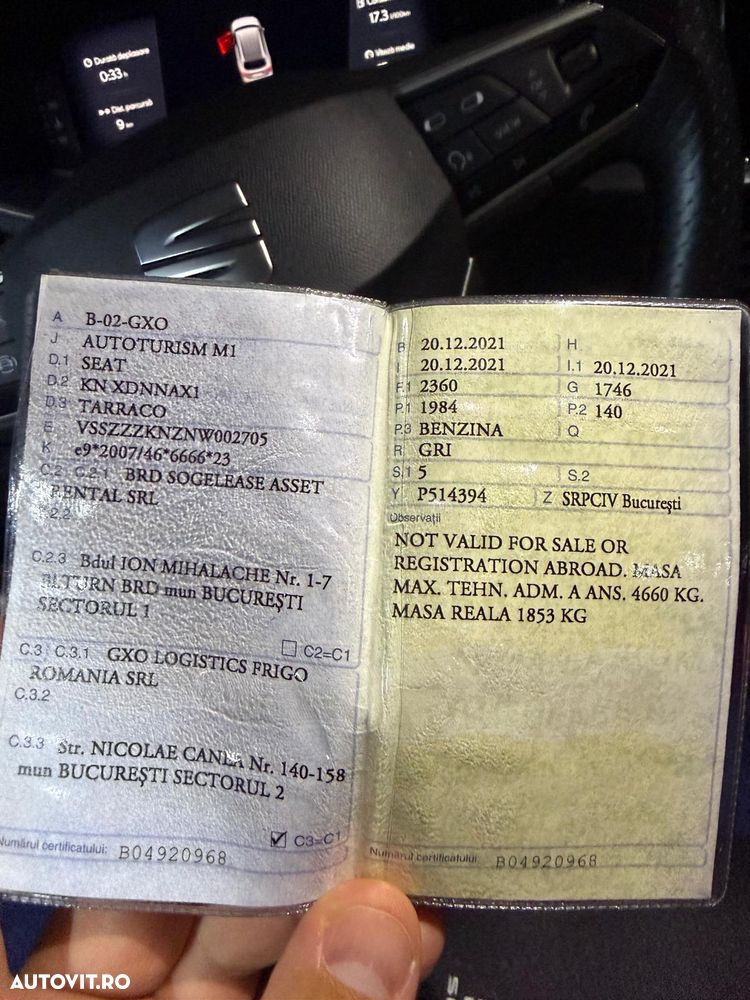 Durată deplasare
0:33 h
Dist. parcursă
9 km
17.3 l/100km
Viteză medie
A B-02-GXO
J AUTOTURISM M1
D.1 SEAT
D.2 KN XDNNAX1
D.3 TARRACO
E VSSZZZKNZNW002705
K e9*2007/46*6666*23
C.2 C.2.1 BRD SOGELEASE ASSET
RENTAL SRL
2.2
C.2.3 Bdul ION MIHALACHE Nr. 1-7
BL.TURN BRD mun BUCUREȘTI
SECTORUL 1
C2=C1
C.3 C.3.1 GXO LOGISTICS FRIGO
ROMANIA SRL
C.3.2
C.3.3 Str. NICOLAE Nr. 140-158
mun BUCUREȘTI SECTORUL 2
C3=C1
Numărul certificatului: B04920968
B 20.12.2021 H
I 20.12.2021 I.1 20.12.2021
F.1 2360 G 1746
P.1 1984 P.2 140
P.3 BENZINA Q
R GRI
S.1 5 S.2
Y P514394 Z SRPCIV București
Observații
NOT VALID FOR SALE OR
REGISTRATION ABROAD. MASA
MAX. TEHN. ADM. A ANS. 4660 KG.
MASA REALA 1853 KG
Numărul certificatului: B04920968
AUTOVIT.RO